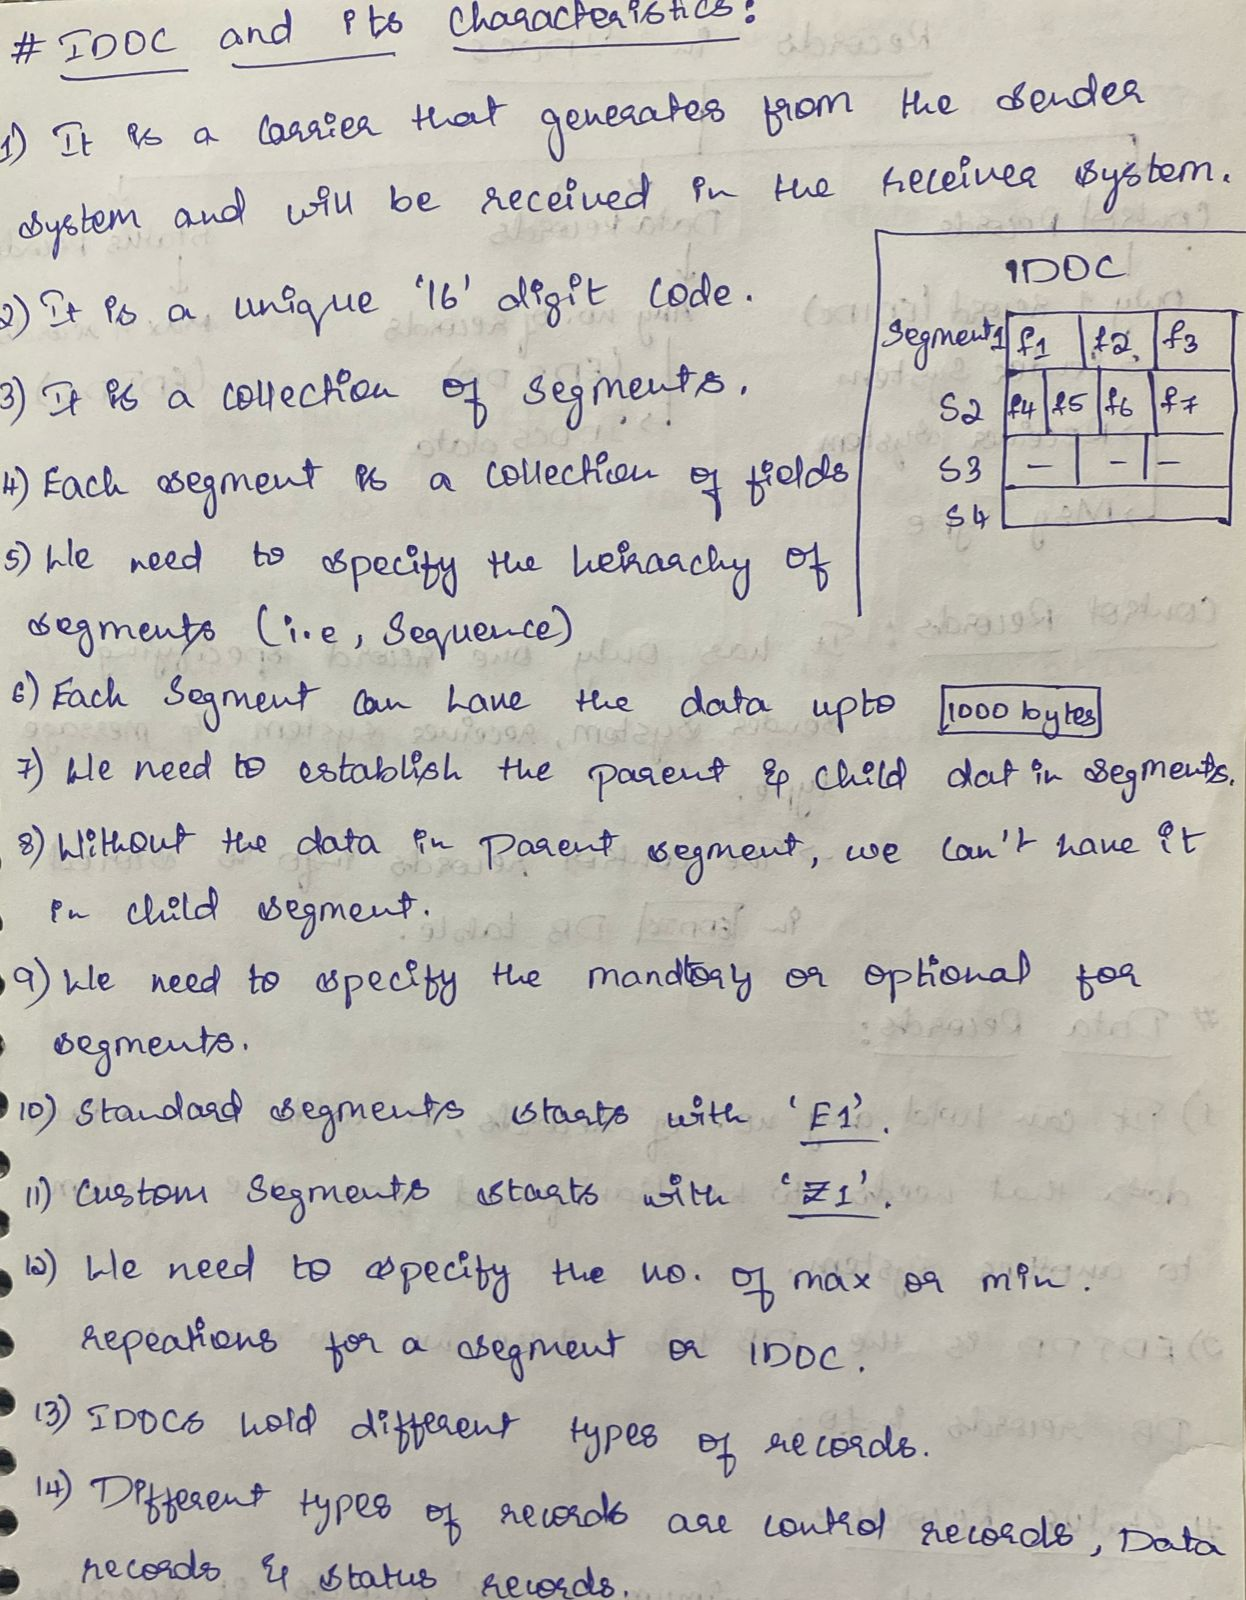 # IDOC and its characteristics:
1) It is a carrier that generates from the sender
system and will be received in the receiver system.
2) It is a unique '16' digit code.
3) It is a collection of segments.
4) Each segment is a collection of fields
5) We need to specify the heirarchy of
segments (i.e, Sequence)
IDOC
Segment1 f1 f2 f3
S2 f4 f5 f6 f7
S3 – – –
S4
6) Each Segment can have the data upto 1000 bytes
7) We need to establish the parent & child dat in segments.
8) Without the data in Parent segment, we can't have it
in child segment.
9) We need to specify the mandtory or optional for
segments.
10) Standard segments starts with 'E1'.
11) Custom Segments starts with 'Z1'.
12) We need to specify the no. of max or min.
repeations for a segment or IDOC.
13) IDOCs hold different types of records.
14) Different types of records are control records, Data
records & status records.